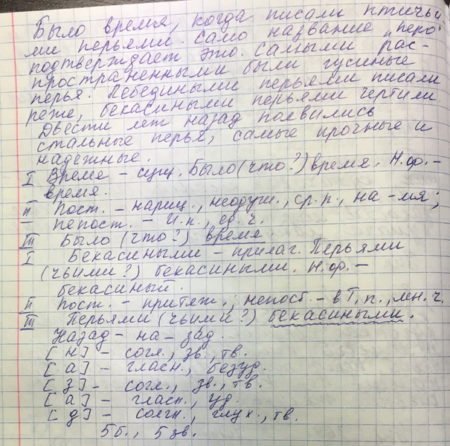 Было время, когда писали птичьи
ми перьями. Само название „перо"
подтверждает это. Самыми рас-
пространенными были гусиные
перья. Лебедиными перьями писали
реже, бекасиными перьями чертили.
Двести лет назад появились
стальные перья, самые прочные и
надежные.
I Время – сущ. Было (что?) время. Н.ф. –
– время.
II Пост. – нариц., неодуш., ср.р., на -мя;
– непост. – И.п., ед.ч.
III Было (что?) время.
I Бекасиными – прилаг. Перьями
(чьими?) бекасиными. Н.ф. –
бекасиный.
II Пост. – притяж., непост. – в Т.п., мн.ч.
III Перьями (чьими?) бекасиными.
Назад – на-зад.
[н] – согл., зв., тв.
[а] – гласн., безуд.
[з] – согл., зв., тв.
[а] – гласн., уд.
[д] – согл., глух., тв.
5б., 5 зв.